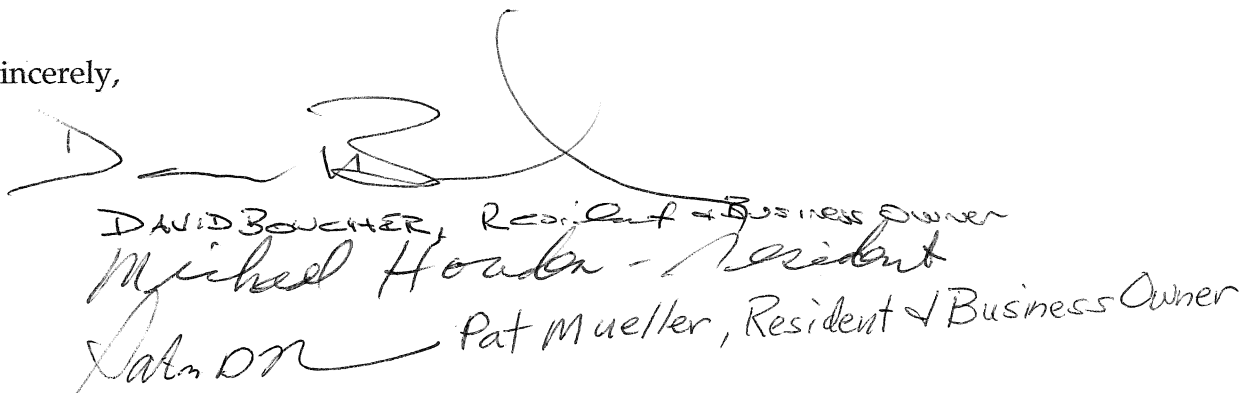 incerely,
DAVID BOUCHER, Resident & Business Owner
Michael - Resident
Pat Mueller, Resident & Business Owner